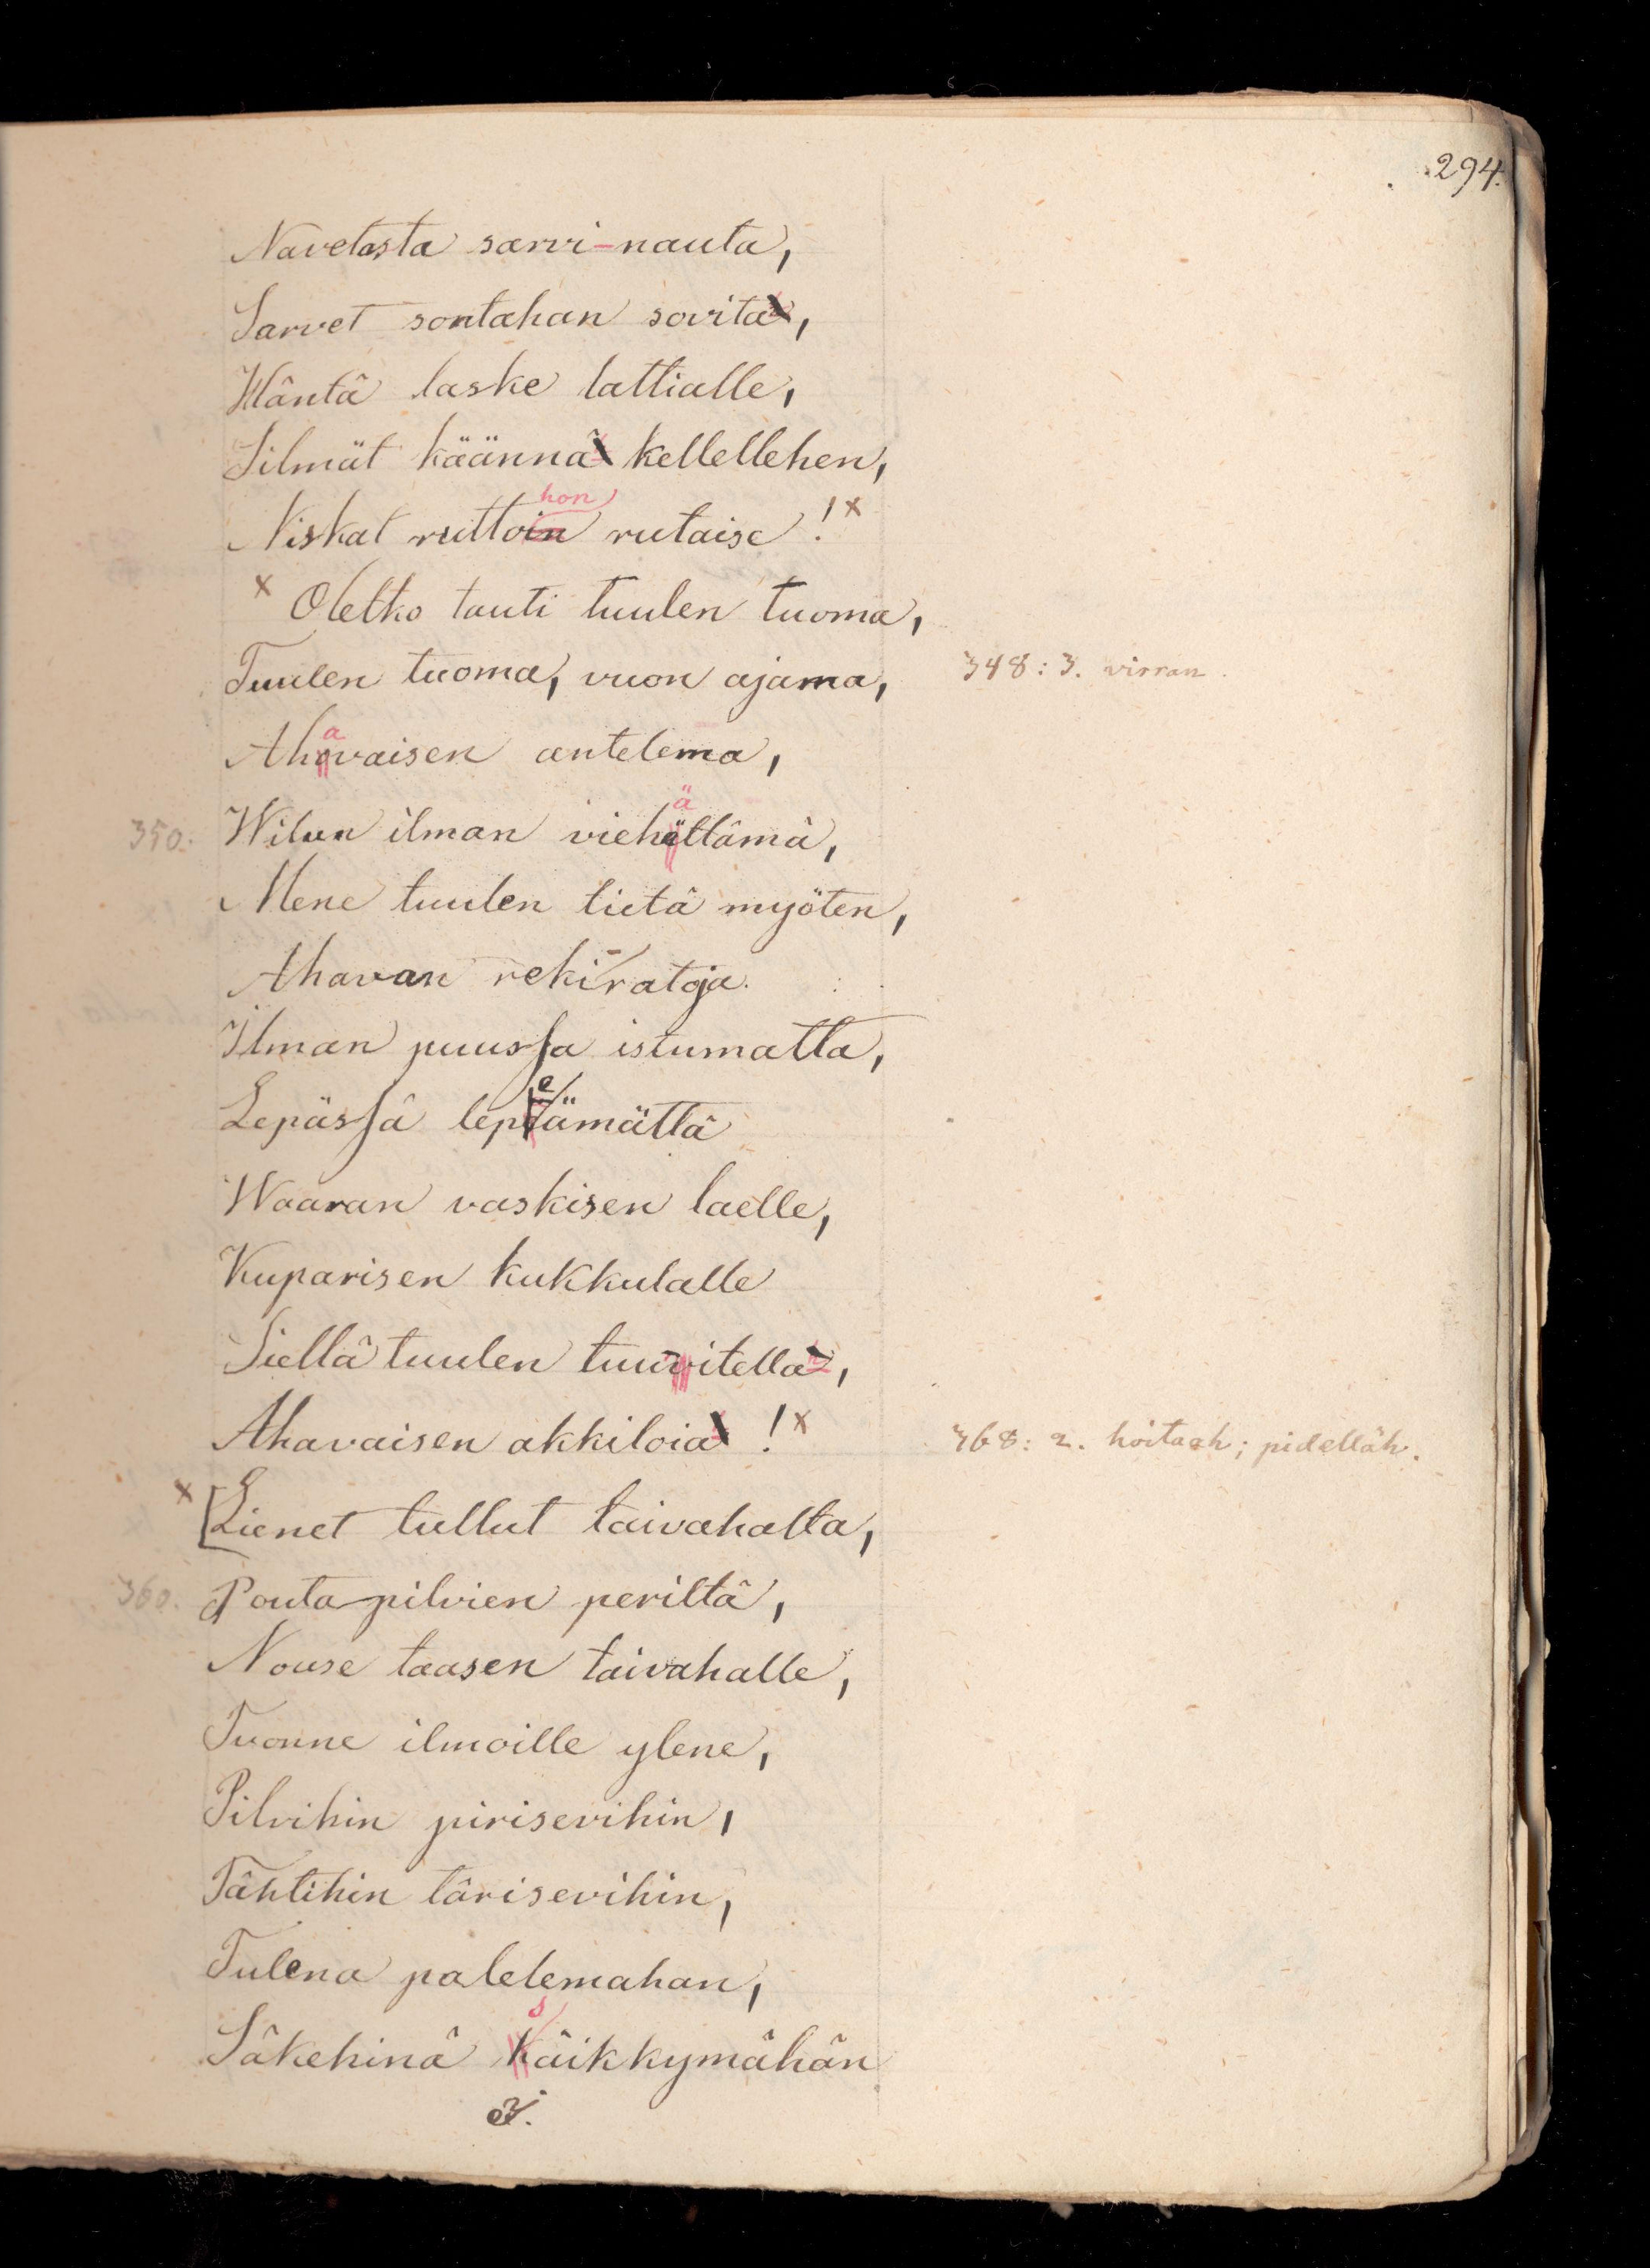 294.
Navetasta sarvi-nauta,
Sarvet sontahan sovita,
Häntä laske lattialle,
Silmät käännä kellellehen,
hon
Niskat ruttoin rutaise! x
x Oletko tauti tuulen tuoma,
Tuulen tuoma, vuon ajama, 348: 3. virran.
a
Ahovaisen antelema,
ä
350. Wilun ilman viehättämä,
Mene tuulen tietä myöten,
Ahavan reki-ratoja.
Ilman puussa istumatta,
e
Lepässä leptämättä
Waaran vaskisen laelle,
Kuparisen kukkulalle
Siellä tuulen tuuvitella,
Ahavaisen akkiloia! x 368: 2. hoitaah; pidelläh.
x [Lienet tullut taivahalta,
360. Poutapilvien periltä,
Nouse taasen taivahalle,
Tuonne ilmoille ylene,
Pilvihin pirisevihin,
Tähtihin tärisevihin,
Tulena palelemahan,
s
Säkehinä käikkymähän